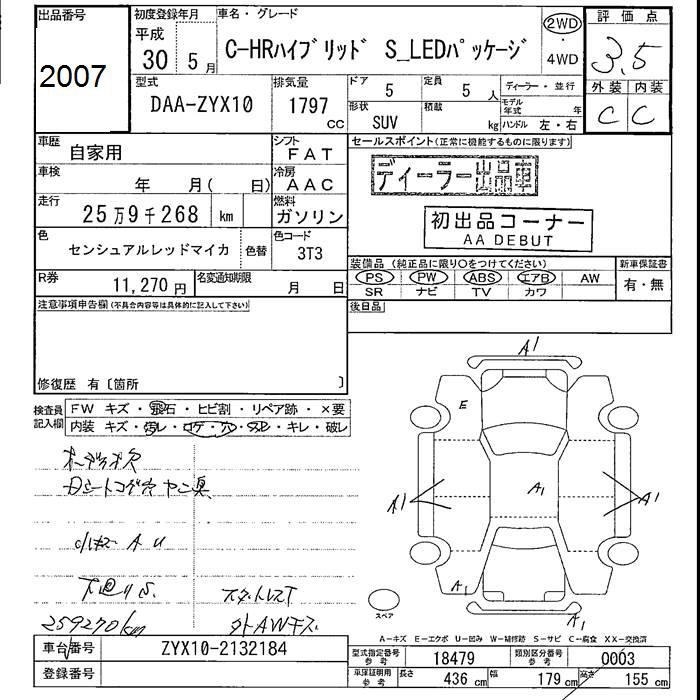 出品番号
2007
初度登録年月
平成
30 5 月
車名・グレード
C-HRハイブリッド S_LEDパッケージ
2WD
・
4WD
評価点
3.5
型式
DAA-ZYX10
排気量
1797
cc
ドア 5
定員 5 人
ディーラー・並行
形状
SUV
積載
kg
モデル年式 年
ハンドル 左・右
外装 内装
C C
車歴
自家用
シフト
FAT
セールスポイント(正常に機能するものに限ります)
車検
年 月( 日)
冷房
AAC
ディーラー出品車
走行
25万9千268 km
燃料
ガソリン
初出品コーナー
AA DEBUT
色
センシュアルレッドマイカ
色替
色コード
3T3
装備品(純正品に限り○をつけてください)
新車保証書
PS PW ABS エアB AW
SR ナビ TV カワ
有・無
R券
11,270 円
名変通知期限
月 日
後日品
注意事項申告欄(不具合内容等は具体的に記入して下さい)
修復歴 有〔箇所 〕
検査員
記入欄
FW キズ・飛石・ヒビ割・リペア跡・×要
内装 キズ・汚レ・コゲ・穴・スレ・キレ・破レ
オーディオ欠
Dシートコゲ穴 ヤニ臭
AU
下廻りS
スタートレスT
259270km
外AWキズ
A1
E
A1
A1
A1
A1
A1
スペア
A-キズ E-エクボ U-凹み W-補修跡 S-サビ C-腐食 XX-交換済
車台番号
ZYX10-2132184
登録番号
型式指定番号
参考
18479
類別区分番号
参考
0003
車庫証明用
参考
長さ 436 cm
幅 179 cm
高さ 155 cm